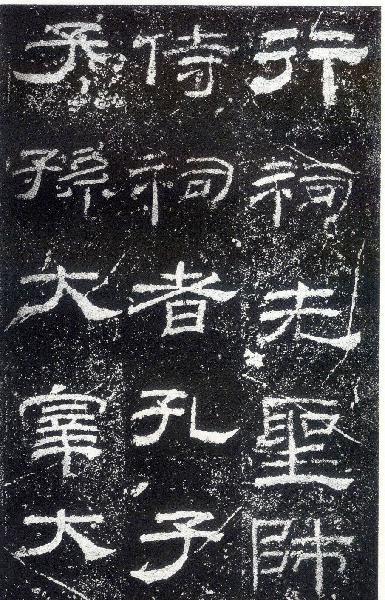 行祠先聖師
侍祠者孔子
子孫大宰大